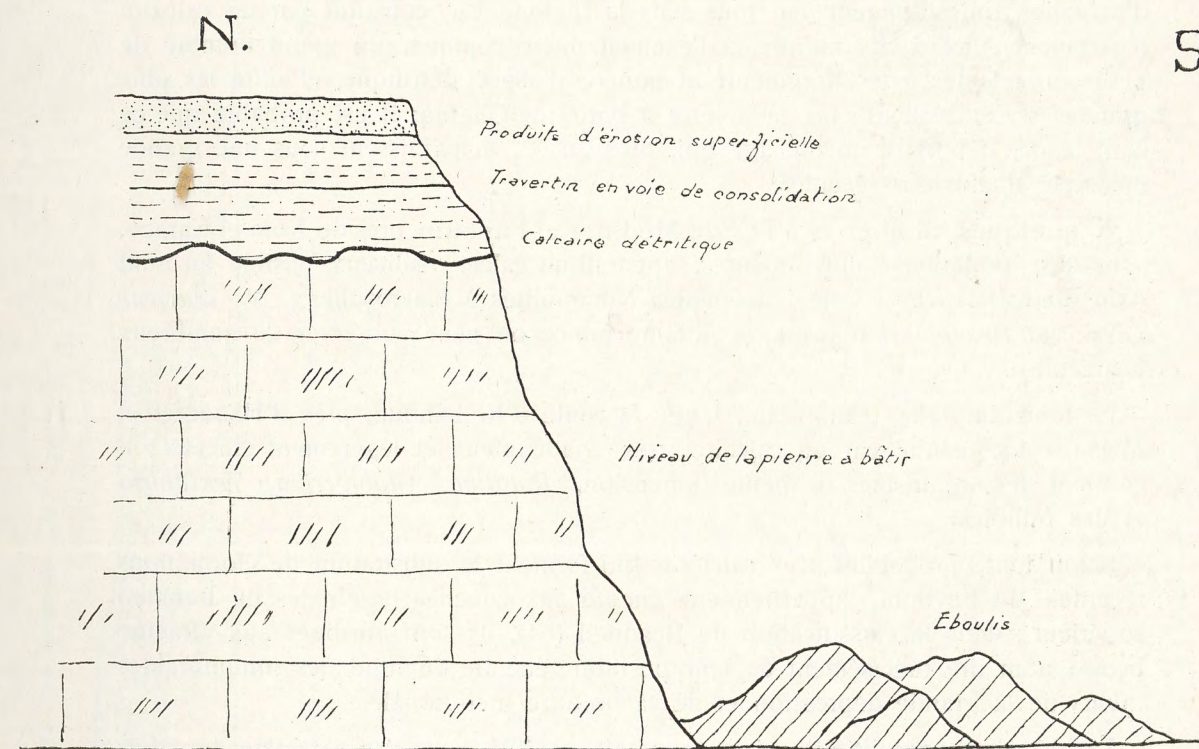 N.
S
Produits d'érosion superficielle
Travertin en voie de consolidation
Calcaire détritique
Niveau de la pierre à bâtir
Eboulis